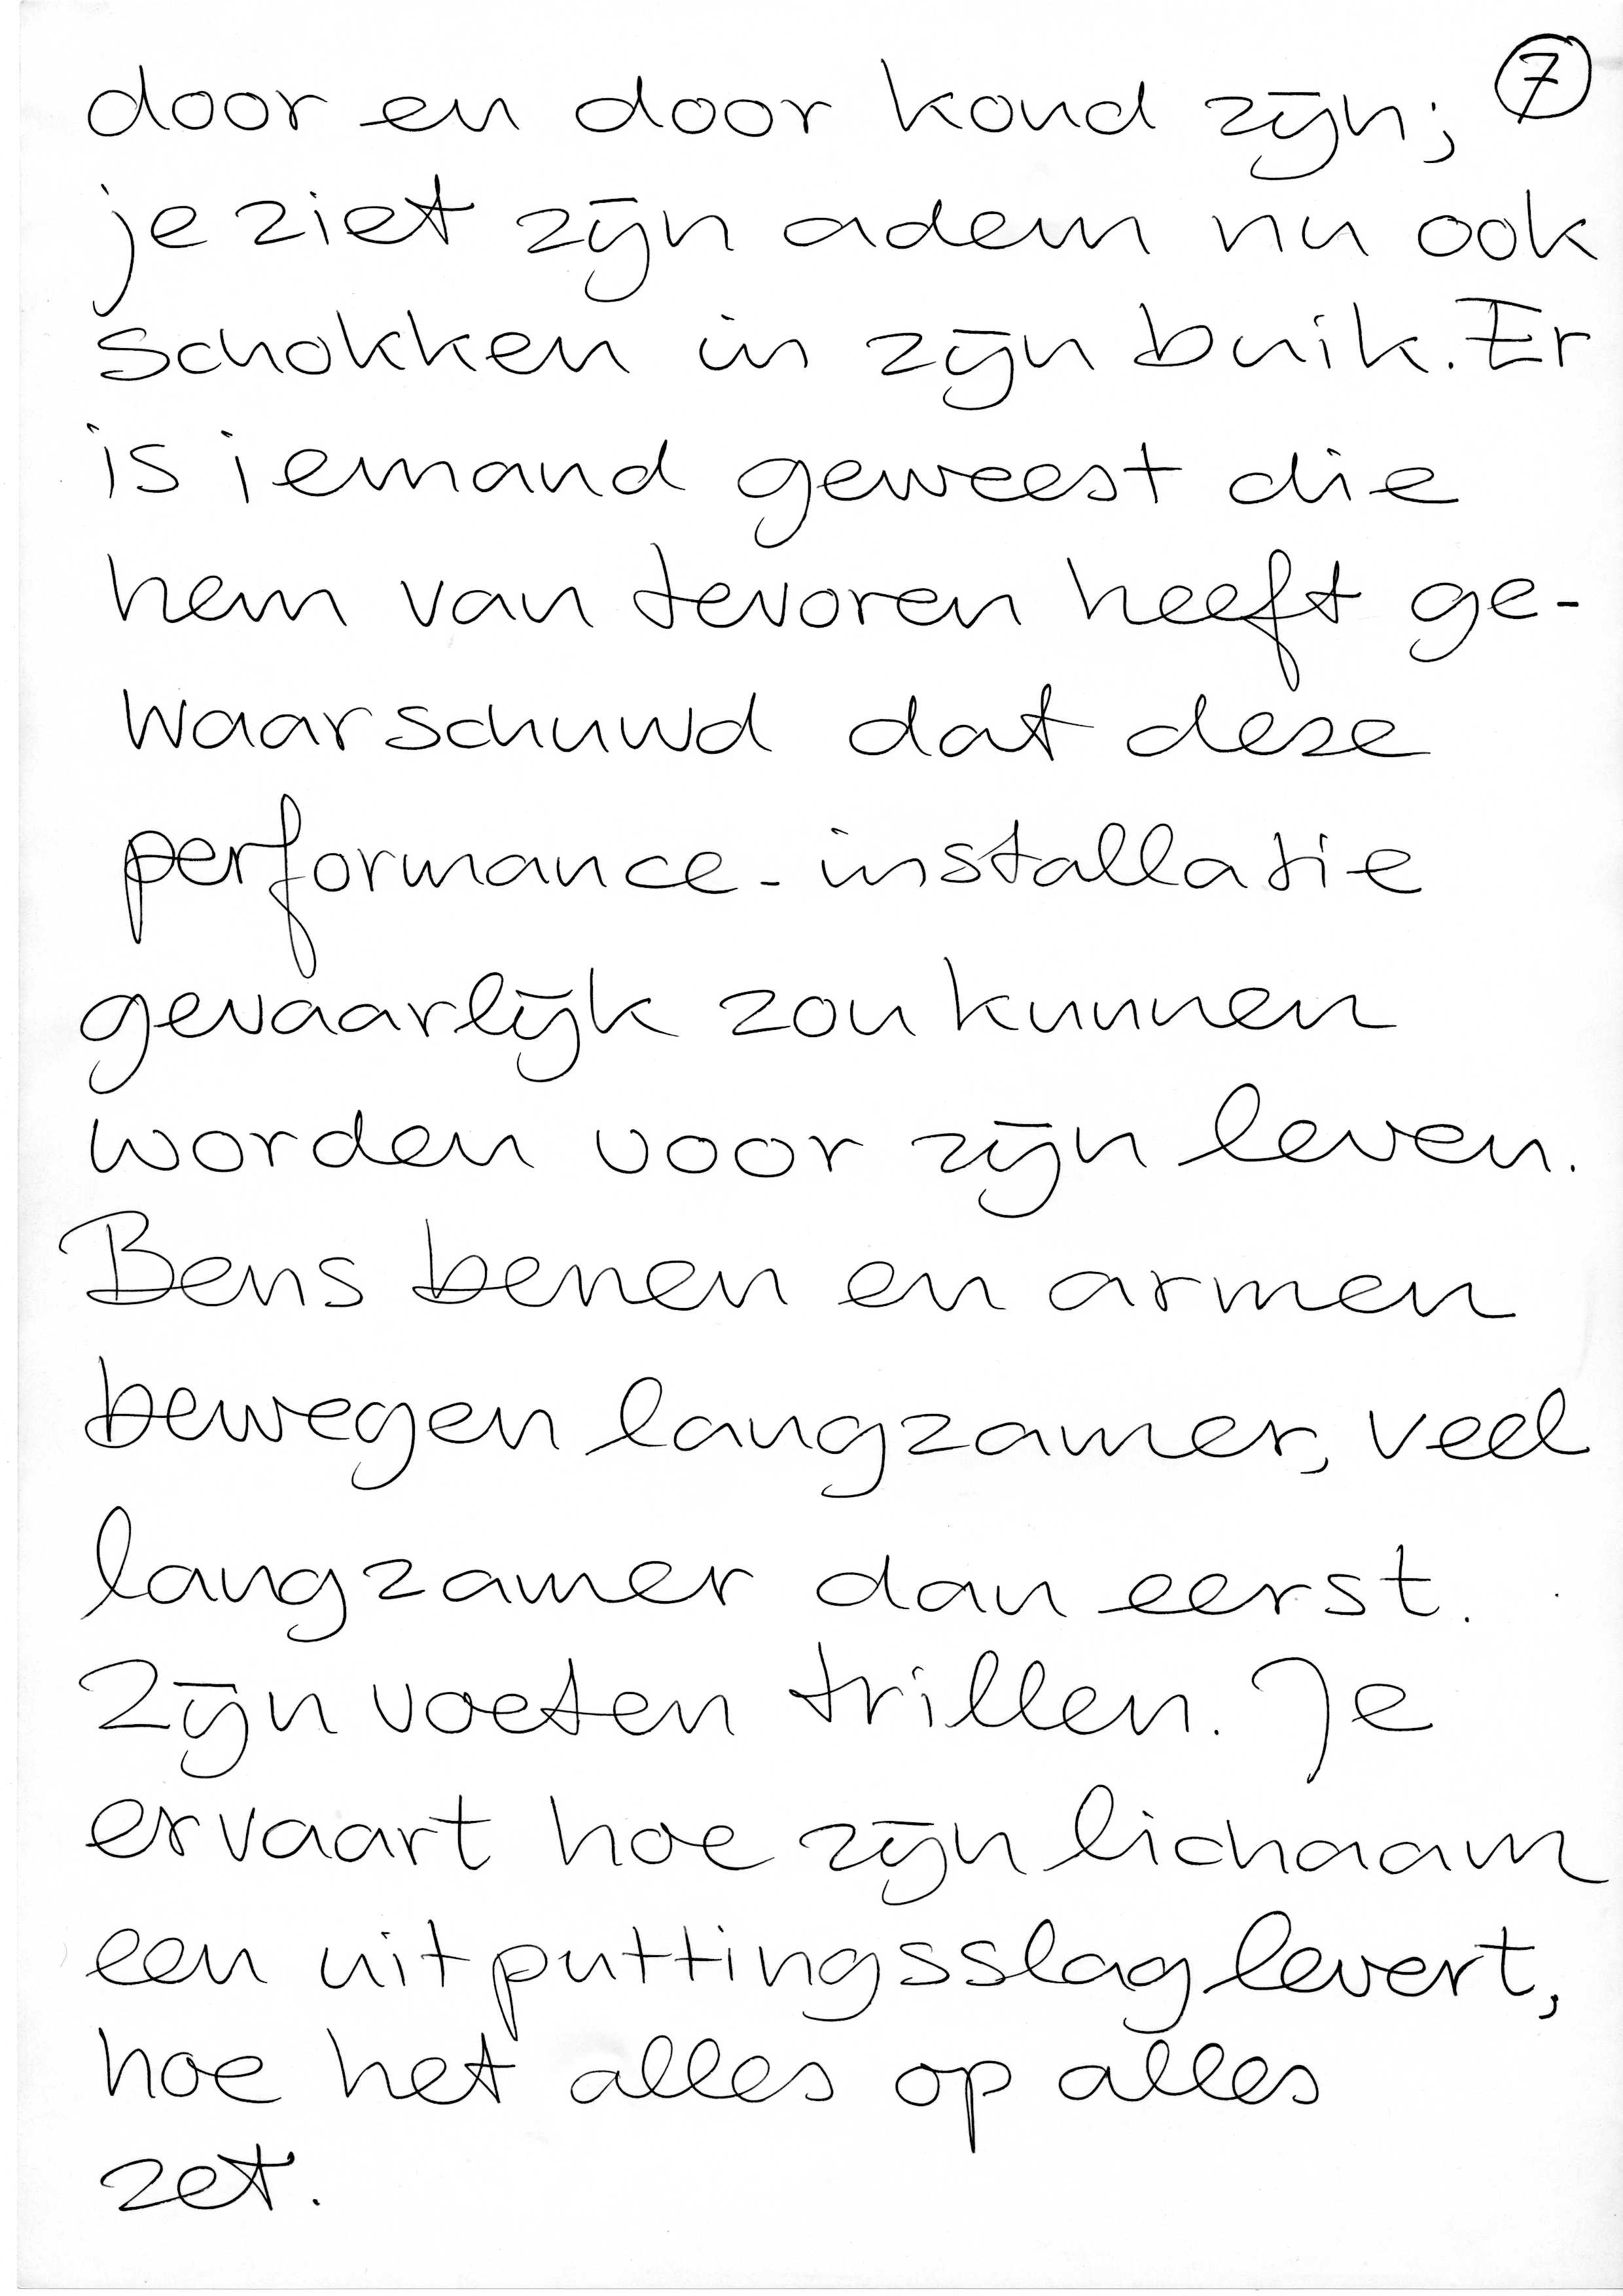 door en door koud zijn; 7
je ziet zijn adem nu ook
schokken in zijn buik. Er
is iemand geweest die
hem van tevoren heeft ge-
waarschuwd dat deze
performance-installatie
gevaarlijk zou kunnen
worden voor zijn leven.
Bens benen en armen
bewegen langzamer, veel
langzamer dan eerst.
Zijn voeten trillen. Je
ervaart hoe zijn lichaam
een uitputtingsslag levert,
hoe het alles op alles
zet.